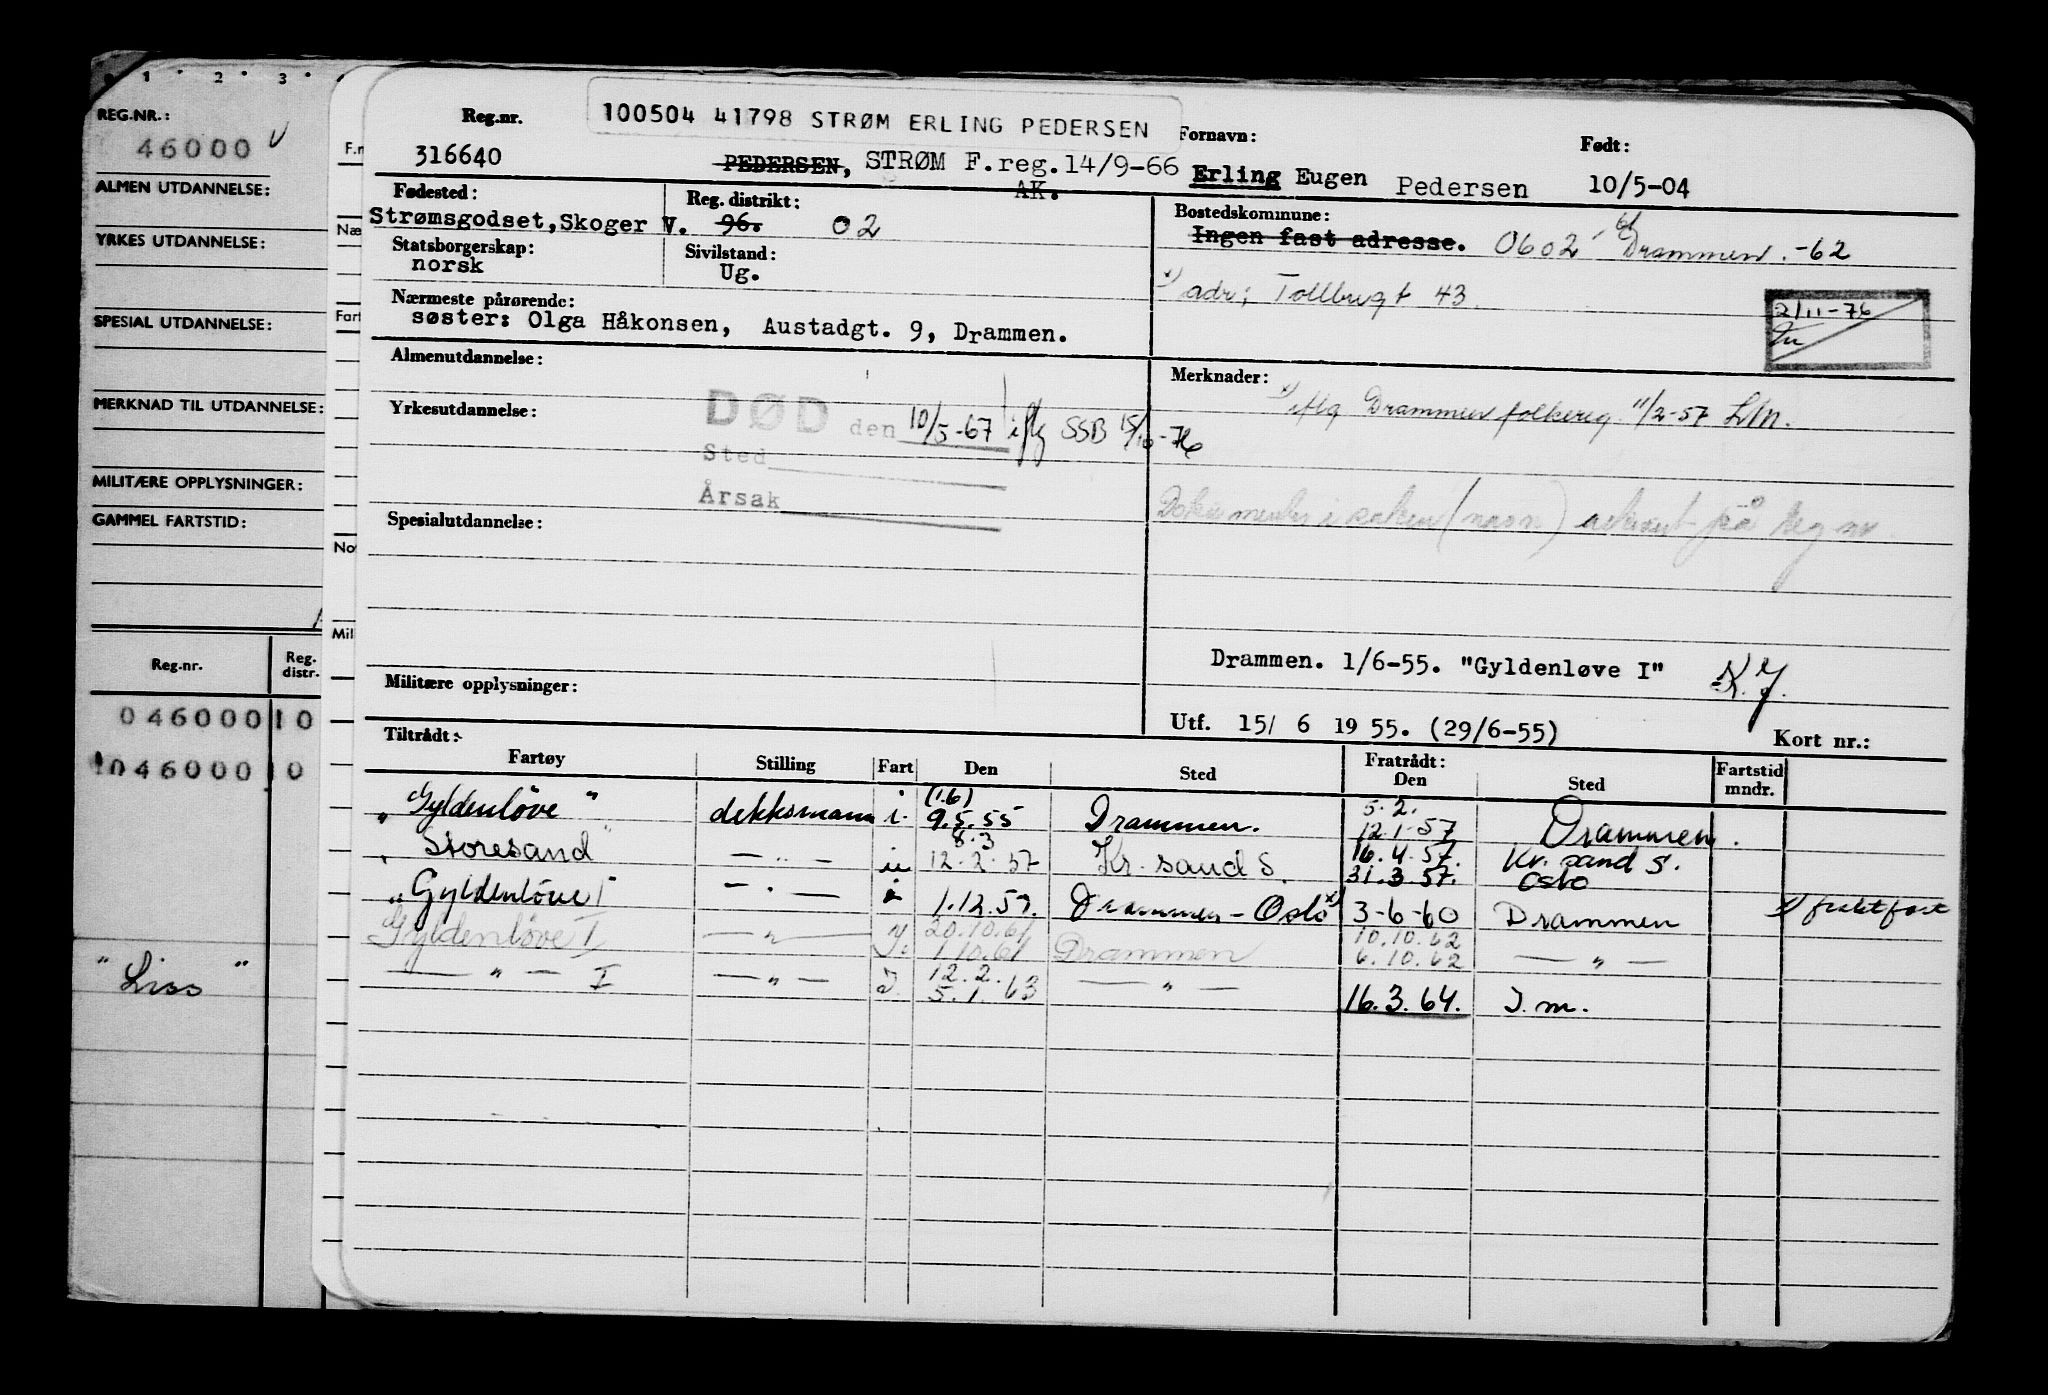 1 2 3
REG.NR.:
46000
ALMEN UTDANNELSE:
YRKES UTDANNELSE:
SPESIAL UTDANNELSE:
MERKNAD TIL UTDANNELSE:
MILITÆRE OPPLYSNINGER:
GAMMEL FARTSTID:
Reg.nr. Reg. distr.
046000 10
046000 10
"Liss"
Næ
Fart
No
Mil
Reg.nr. 100504 41798 STRØM ERLING PEDERSEN Fornavn: Født:
316640 PEDERSEN, STRØM F.reg.14/9-66 Erling Eugen Pedersen 10/5-04
AK.
Fødested: Reg. distrikt: Bostedskommune:
Strømsgodset, Skoger V. 96. 02 Ingen fast adresse. 0602 Drammen. -62
Statsborgerskap: Sivilstand:
norsk Ug. x) adr; Tollbugt 43.
Nærmeste pårørende:
søster: Olga Håkonsen, Austadgt. 9, Drammen.
2/11-76
Almenutdannelse: Merknader:
x) iflg Drammen folkereg. 11/2-57 L/n.
Yrkesutdannelse:
DØD den 10/5-67 iflg SSB 15/10-76
Sted
Årsak
Spesialutdannelse:
Dokumenter i saken (navn) arkivert på reg nr
Drammen. 1/6-55. "Gyldenløve I" K.J.
Militære opplysninger:
Utf. 15/ 6 1955. (29/6-55) Kort nr.:
Tiltrådt: Fratrådt:
Fartøy Stilling Fart Den Sted Den Sted Fartstid mndr.
"Gyldenløve" dekksmann i. (1.6) 9.5.55 Drammen. 5.2. 12.1.57 Drammen.
"Storesand" — " — u 8.3 12.2.57 Kr. sand S. 16.4.57. 31.3.57. Kr. sand S. Oslo
"Gyldenløve I" — " — i 1.12.59. Drammen - Oslo x) 3-6-60 Drammen x) fraktfart
Gyldenløve I — " — I. 20.10.61 1.10.61 Drammen 10.10.62 6.10.62 — " —
— " — I — " — I. 12.2. 5.1.63 — " — 16.3.64. I.m.